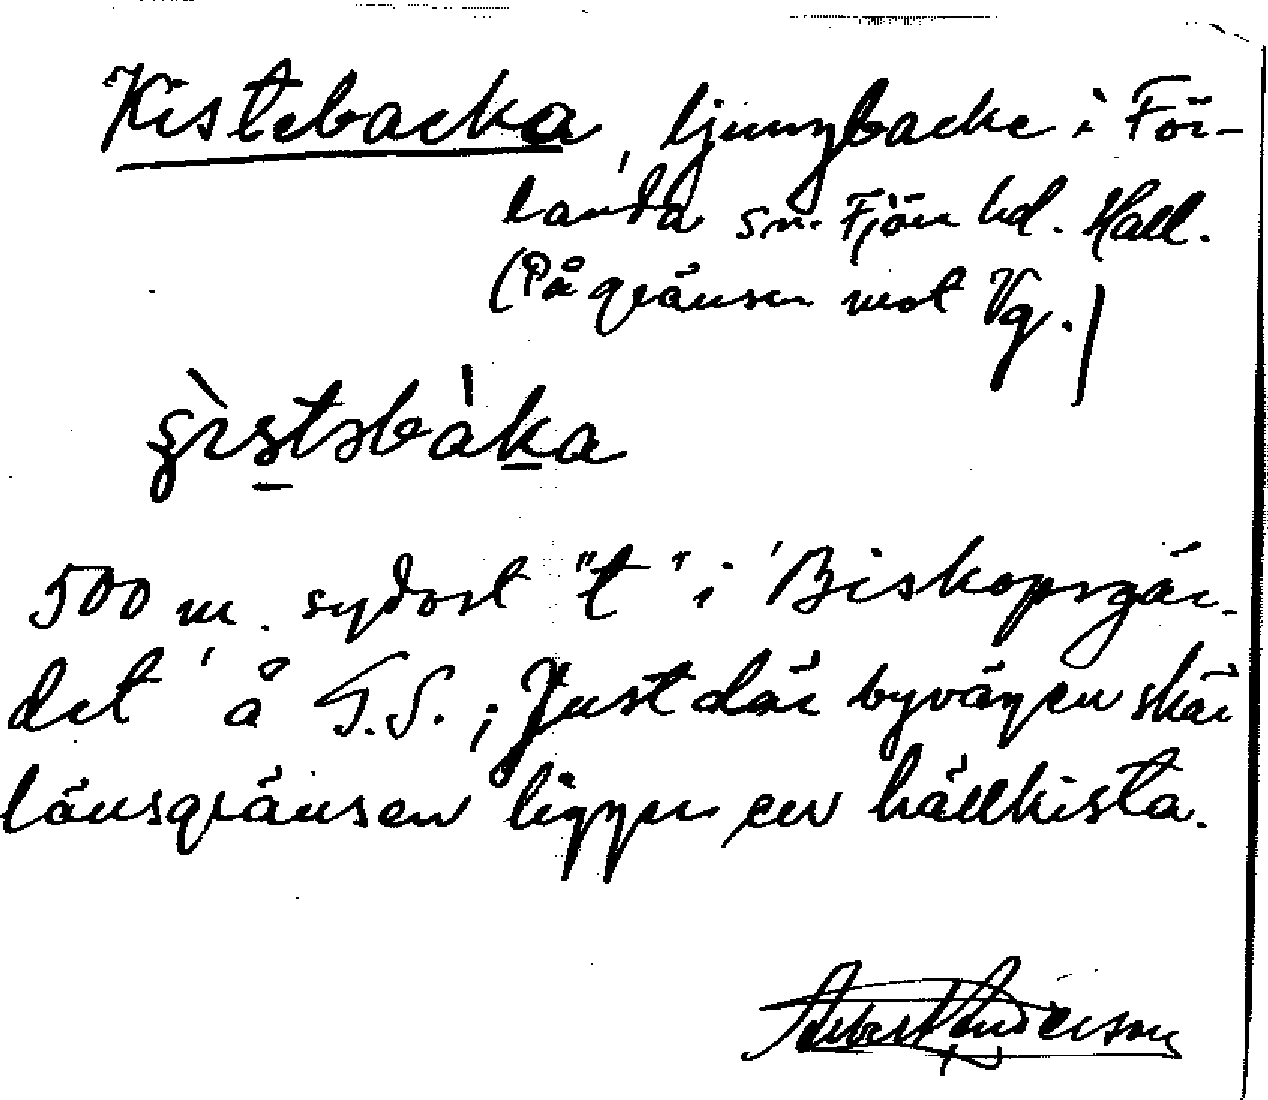 Kistebacka, ljungbacke i För-
landa sn. Fjäre hd. Hall.
(På gränsen mot Vg.)
500 m. sydost "t" i 'Biskopsgär-
det' å G.S.; Just där byvägen skär
länsgränsen ligger en hällkista.
Anderson